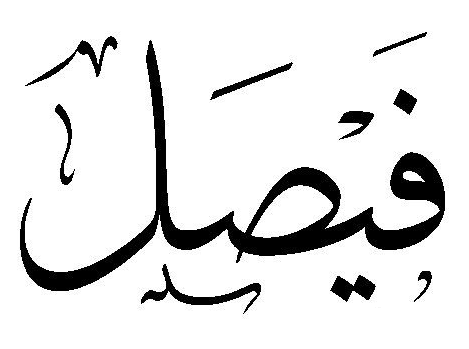 فَيْصَل